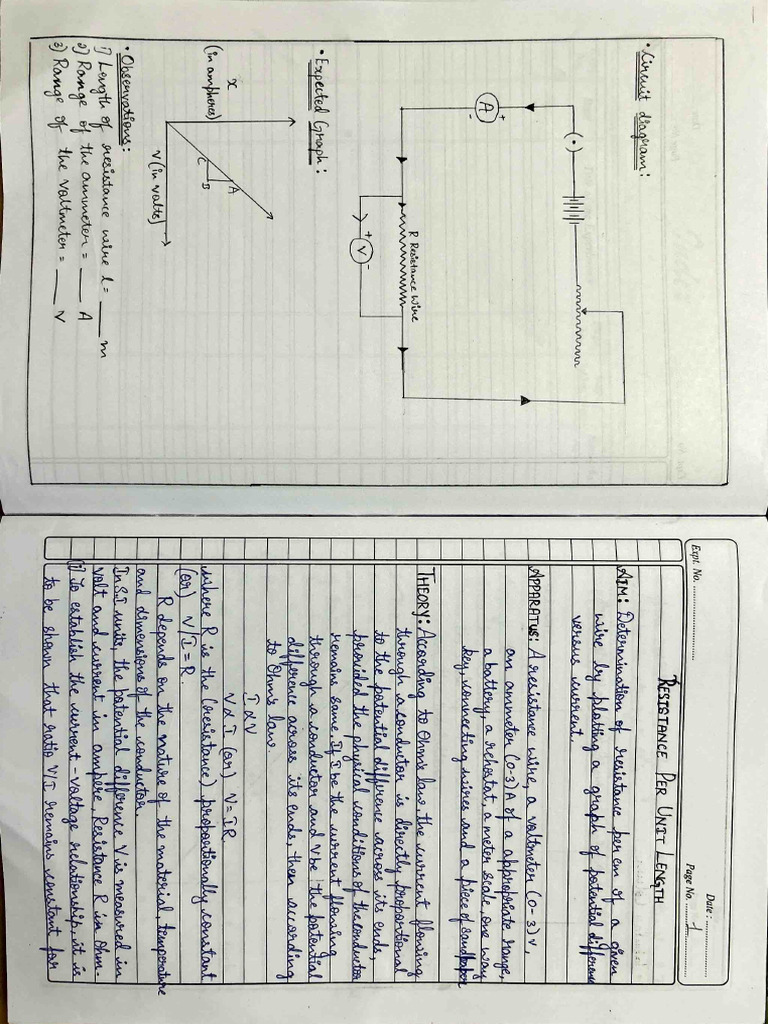 • Circuit diagram:
A
+
-
(•)
R Resistance Wire
+
V
-
• Expected Graph:
x
(in amperes)
A
B
C
V (in volts)
• Observations:
1) Length of resistance wire l = ____ m
2) Range of the ammeter = ____ A
3) Range of the voltmeter = ____ V
Date :
Expt. No.
Page No. 1
RESISTANCE PER UNIT LENGTH
AIM: Determination of resistance per cm of a given
wire by plotting a graph of potential difference
versus current.
APPARATUS: A resistance wire, a voltmeter (0-3)V,
an ammeter (0-3)A of a appropriate range,
a battery, a rehostat, a meter scale one way
key, connecting wires and a piece of sandpaper
THEORY: According to Ohm's law the current flowing
through a conductor is directly proportional
to the potential difference across its ends,
provided the physical conditions of the conductor
remains same. If I be the current flowing
through a conductor and V be the potential
difference across its ends, then according
to Ohm's law.
I ∝ V
V ∝ I (or) V = IR
where R is the (resistance) proportionally constant
(or) V/I = R
R depends on the nature of the material, temperature
and dimensions of the conductor.
In S.I units, the potential difference V is measured in
volt and current in ampere, Resistance R in ohm-
(i) To establish the current - voltage relationship, it is
to be shown that ratio V/I remains constant for